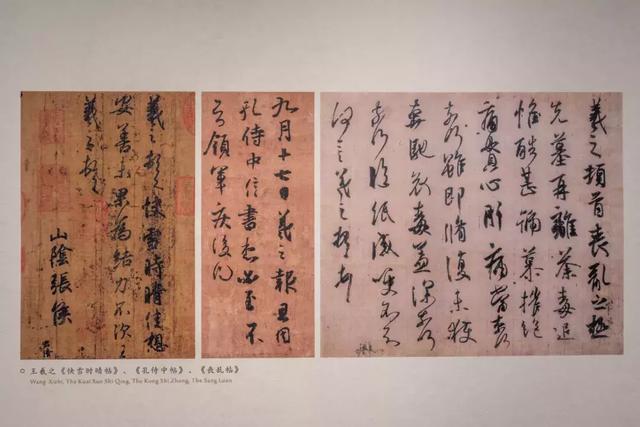 羲之頓首快雪時晴佳想
安善未果為結力不次王
羲之頓首
山陰張侯
九月十七日羲之報且因
孔侍中信書想必至不
知領軍疾後問
羲之頓首喪亂之極
先墓再離荼毒追
惟酷甚號慕摧絕
痛貫心肝痛當奈何
奈何雖即脩復未獲
奔馳哀毒益深奈何
奈何臨紙感哽不知
何言羲之頓首頓首
王羲之《快雪时晴帖》、《孔侍中帖》、《丧乱帖》
Wang Xizhi, The Kuai Xue Shi Qing, The Kong Shi Zhong, The Sang Luan